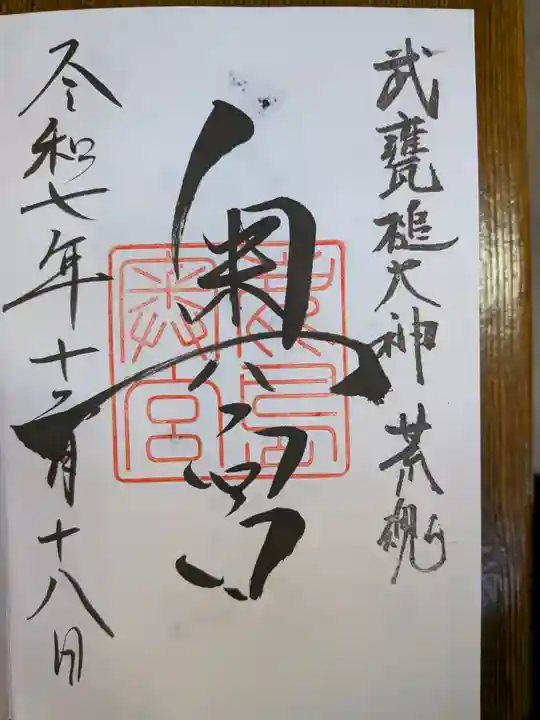 武甕槌大神 荒魂
奥宮
鹿島
奥宮
令和七年十二月十八日